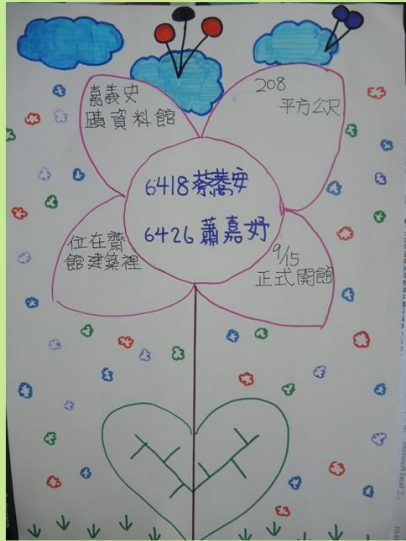 嘉義史
蹟資料館
208
平方公尺
6418蔡蕎安
6426蕭嘉妤
位在齋
館建築裡
9/15
正式開館